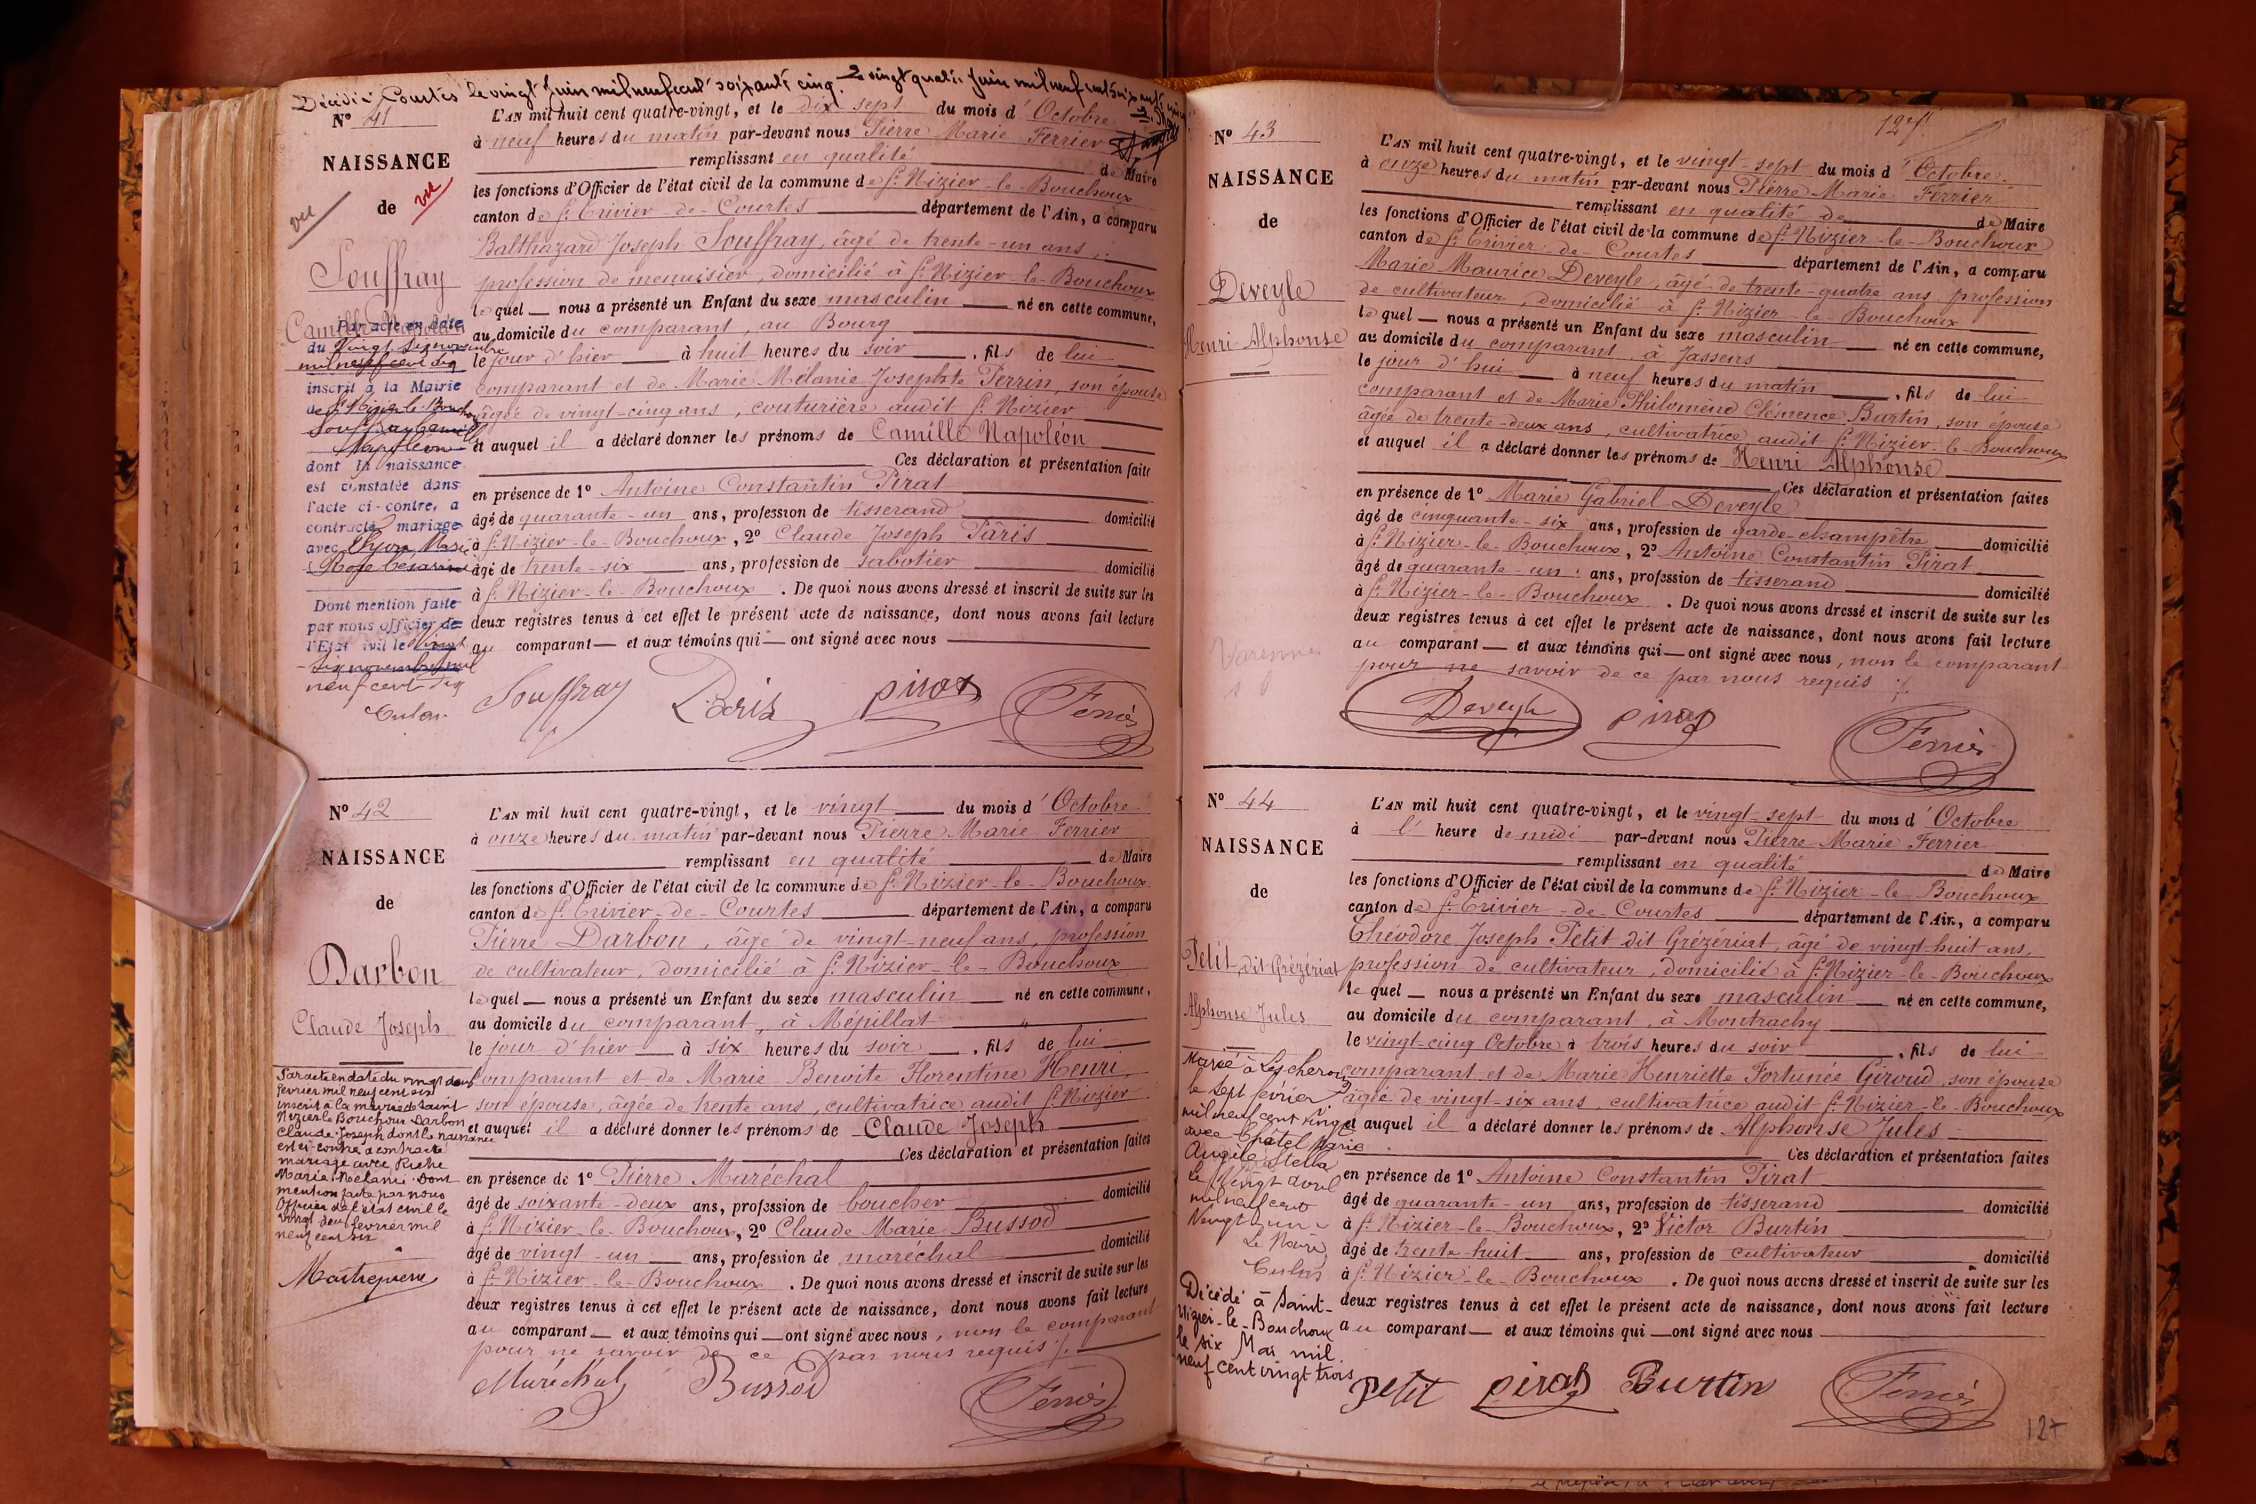 Décédé à Courtes le vingt Juin mil neuf cent soixante cinq. Le vingt quatre Juin mil neuf cent soixante cinq
N° 41
NAISSANCE
de
vu
vu
Souffray
Camille Napoléon
Par acte en date
du vingt six novembre
mil neuf cent dix
inscrit à la Mairie
de St Nizier-le-Bouchoux
Souffray Camille
Napoléon
dont la naissance
est constatée dans
l'acte ci-contre, a
contracté mariage
avec Marie
Rose Césarine
Dont mention faite
par nous officier de
l'Etat civil le vingt
six novembre mil
neuf cent dix
L'AN mil huit cent quatre-vingt, et le dix sept du mois d'Octobre
à neuf heures du matin par-devant nous Pierre Marie Ferrier
remplissant en qualité de Maire
les fonctions d'Officier de l'état civil de la commune de St Nizier-le-Bouchoux
canton de St Trivier-de-Courtes département de l'Ain, a comparu
Balthazard Joseph Souffray, âgé de trente-un ans,
profession de menuisier, domicilié à St Nizier-le-Bouchoux
le quel nous a présenté un Enfant du sexe masculin né en cette commune,
au domicile du comparant, au Bourg
le jour d'hier à huit heures du soir, fils de lui
comparant et de Marie Mélanie Josephte Perrin, son épouse
âgée de vingt-cinq ans, couturière audit St Nizier
et auquel il a déclaré donner les prénoms de Camille Napoléon
Ces déclaration et présentation faite
en présence de 1° Antoine Constantin Pirat
âgé de quarante-un ans, profession de tisserand domicilié
à St Nizier-le-Bouchoux, 2° Claude Joseph Pâris
âgé de trente-six ans, profession de sabotier domicilié
à St Nizier-le-Bouchoux. De quoi nous avons dressé et inscrit de suite sur les
deux registres tenus à cet effet le présent acte de naissance, dont nous avons fait lecture
au comparant et aux témoins qui ont signé avec nous
Souffray Pâris pirat Ferrier
N° 42
NAISSANCE
de
Darbon
Claude Joseph
Par acte en date du vingt deux
février mil neuf cent six
inscrit à la mairie de Saint
Nizier le Bouchoux Darbon
Claude Joseph dont la naissance
est ci-contre a contracté
mariage avec Riche
Marie Mélanie. Dont
mention faite par nous
Officier de l'état civil le
vingt deux février mil
neuf cent six
L'AN mil huit cent quatre-vingt, et le vingt du mois d'Octobre
à onze heures du matin par-devant nous Pierre Marie Ferrier
remplissant en qualité de Maire
les fonctions d'Officier de l'état civil de la commune de St Nizier-le-Bouchoux
canton de St Trivier-de-Courtes département de l'Ain, a comparu
Pierre Darbon, âgé de vingt-neuf ans, profession
de cultivateur, domicilié à St Nizier-le-Bouchoux
le quel nous a présenté un Enfant du sexe masculin né en cette commune,
au domicile du comparant, à Mépillat
le jour d'hier à six heures du soir, fils de lui
comparant et de Marie Benoite Florentine Henri,
son épouse, âgée de trente ans, cultivatrice audit St Nizier
et auquel il a déclaré donner les prénoms de Claude Joseph
Ces déclaration et présentation faites
en présence de 1° Pierre Maréchal
âgé de soixante-deux ans, profession de boucher domicilié
à St Nizier-le-Bouchoux, 2° Claude Marie Bussod
âgé de vingt-un ans, profession de maréchal domicilié
à St Nizier-le-Bouchoux. De quoi nous avons dressé et inscrit de suite sur les
deux registres tenus à cet effet le présent acte de naissance, dont nous avons fait lecture
au comparant et aux témoins qui ont signé avec nous, non le comparant
pour ne savoir de ce par nous requis
Maréchal Bussod Ferrier
127
N° 43
NAISSANCE
de
Deveyle
Henri Alphonse
Varenne
L'AN mil huit cent quatre-vingt, et le vingt-sept du mois d'Octobre
à onze heures du matin par-devant nous Pierre Marie Ferrier
remplissant en qualité de de Maire
les fonctions d'Officier de l'état civil de la commune de St Nizier-le-Bouchoux
canton de St Trivier-de-Courtes département de l'Ain, a comparu
Marie Maurice Deveyle, âgé de trente-quatre ans, profession
de cultivateur, domicilié à St Nizier-le-Bouchoux
le quel nous a présenté un Enfant du sexe masculin né en cette commune,
au domicile du comparant, à Jassens
le jour d'hui à neuf heures du matin, fils de lui
comparant et de Marie Philomène Clémence Burtin, son épouse
âgée de trente-deux ans, cultivatrice audit St Nizier-le-Bouchoux
et auquel il a déclaré donner les prénoms de Henri Alphonse
Ces déclaration et présentation faites
en présence de 1° Marie Gabriel Deveyle
âgé de cinquante-six ans, profession de garde-champêtre domicilié
à St Nizier-le-Bouchoux, 2° Antoine Constantin Pirat
âgé de quarante-un ans, profession de tisserand domicilié
à St Nizier-le-Bouchoux. De quoi nous avons dressé et inscrit de suite sur les
deux registres tenus à cet effet le présent acte de naissance, dont nous avons fait lecture
au comparant et aux témoins qui ont signé avec nous, non le comparant
pour ne savoir de ce par nous requis
Deveyle pirat Ferrier
N° 44
NAISSANCE
de
Petit, dit Grézériat
Alphonse Jules
Marié à Lescheroux
le sept février
mil neuf cent vingt
avec Châtel Marie
Angèle Stella
le vingt avril
mil neuf cent
vingt un
Le Maire
Décédé à Saint-
Nizier-le-Bouchoux
le six Mai mil
neuf cent vingt trois
L'AN mil huit cent quatre-vingt, et le vingt-sept du mois d'Octobre
à l' heure de midi par-devant nous Pierre Marie Ferrier
remplissant en qualité de Maire
les fonctions d'Officier de l'état civil de la commune de St Nizier-le-Bouchoux
canton de St Trivier-de-Courtes département de l'Ain, a comparu
Théodore Joseph Petit dit Grézériat, âgé de vingt-huit ans,
profession de cultivateur, domicilié à St Nizier-le-Bouchoux
le quel nous a présenté un Enfant du sexe masculin né en cette commune,
au domicile du comparant, à Montrachy
le vingt-cinq Octobre à trois heures du soir, fils de lui
comparant et de Marie Henriette Fortunée Giroud, son épouse
âgée de vingt-six ans, cultivatrice audit St Nizier-le-Bouchoux
et auquel il a déclaré donner les prénoms de Alphonse Jules
Ces déclaration et présentation faites
en présence de 1° Antoine Constantin Pirat
âgé de quarante-un ans, profession de tisserand domicilié
à St Nizier-le-Bouchoux, 2° Victor Burtin
âgé de trente-huit ans, profession de cultivateur domicilié
à St Nizier-le-Bouchoux. De quoi nous avons dressé et inscrit de suite sur les
deux registres tenus à cet effet le présent acte de naissance, dont nous avons fait lecture
au comparant et aux témoins qui ont signé avec nous
Petit pirat Burtin Ferrier
127